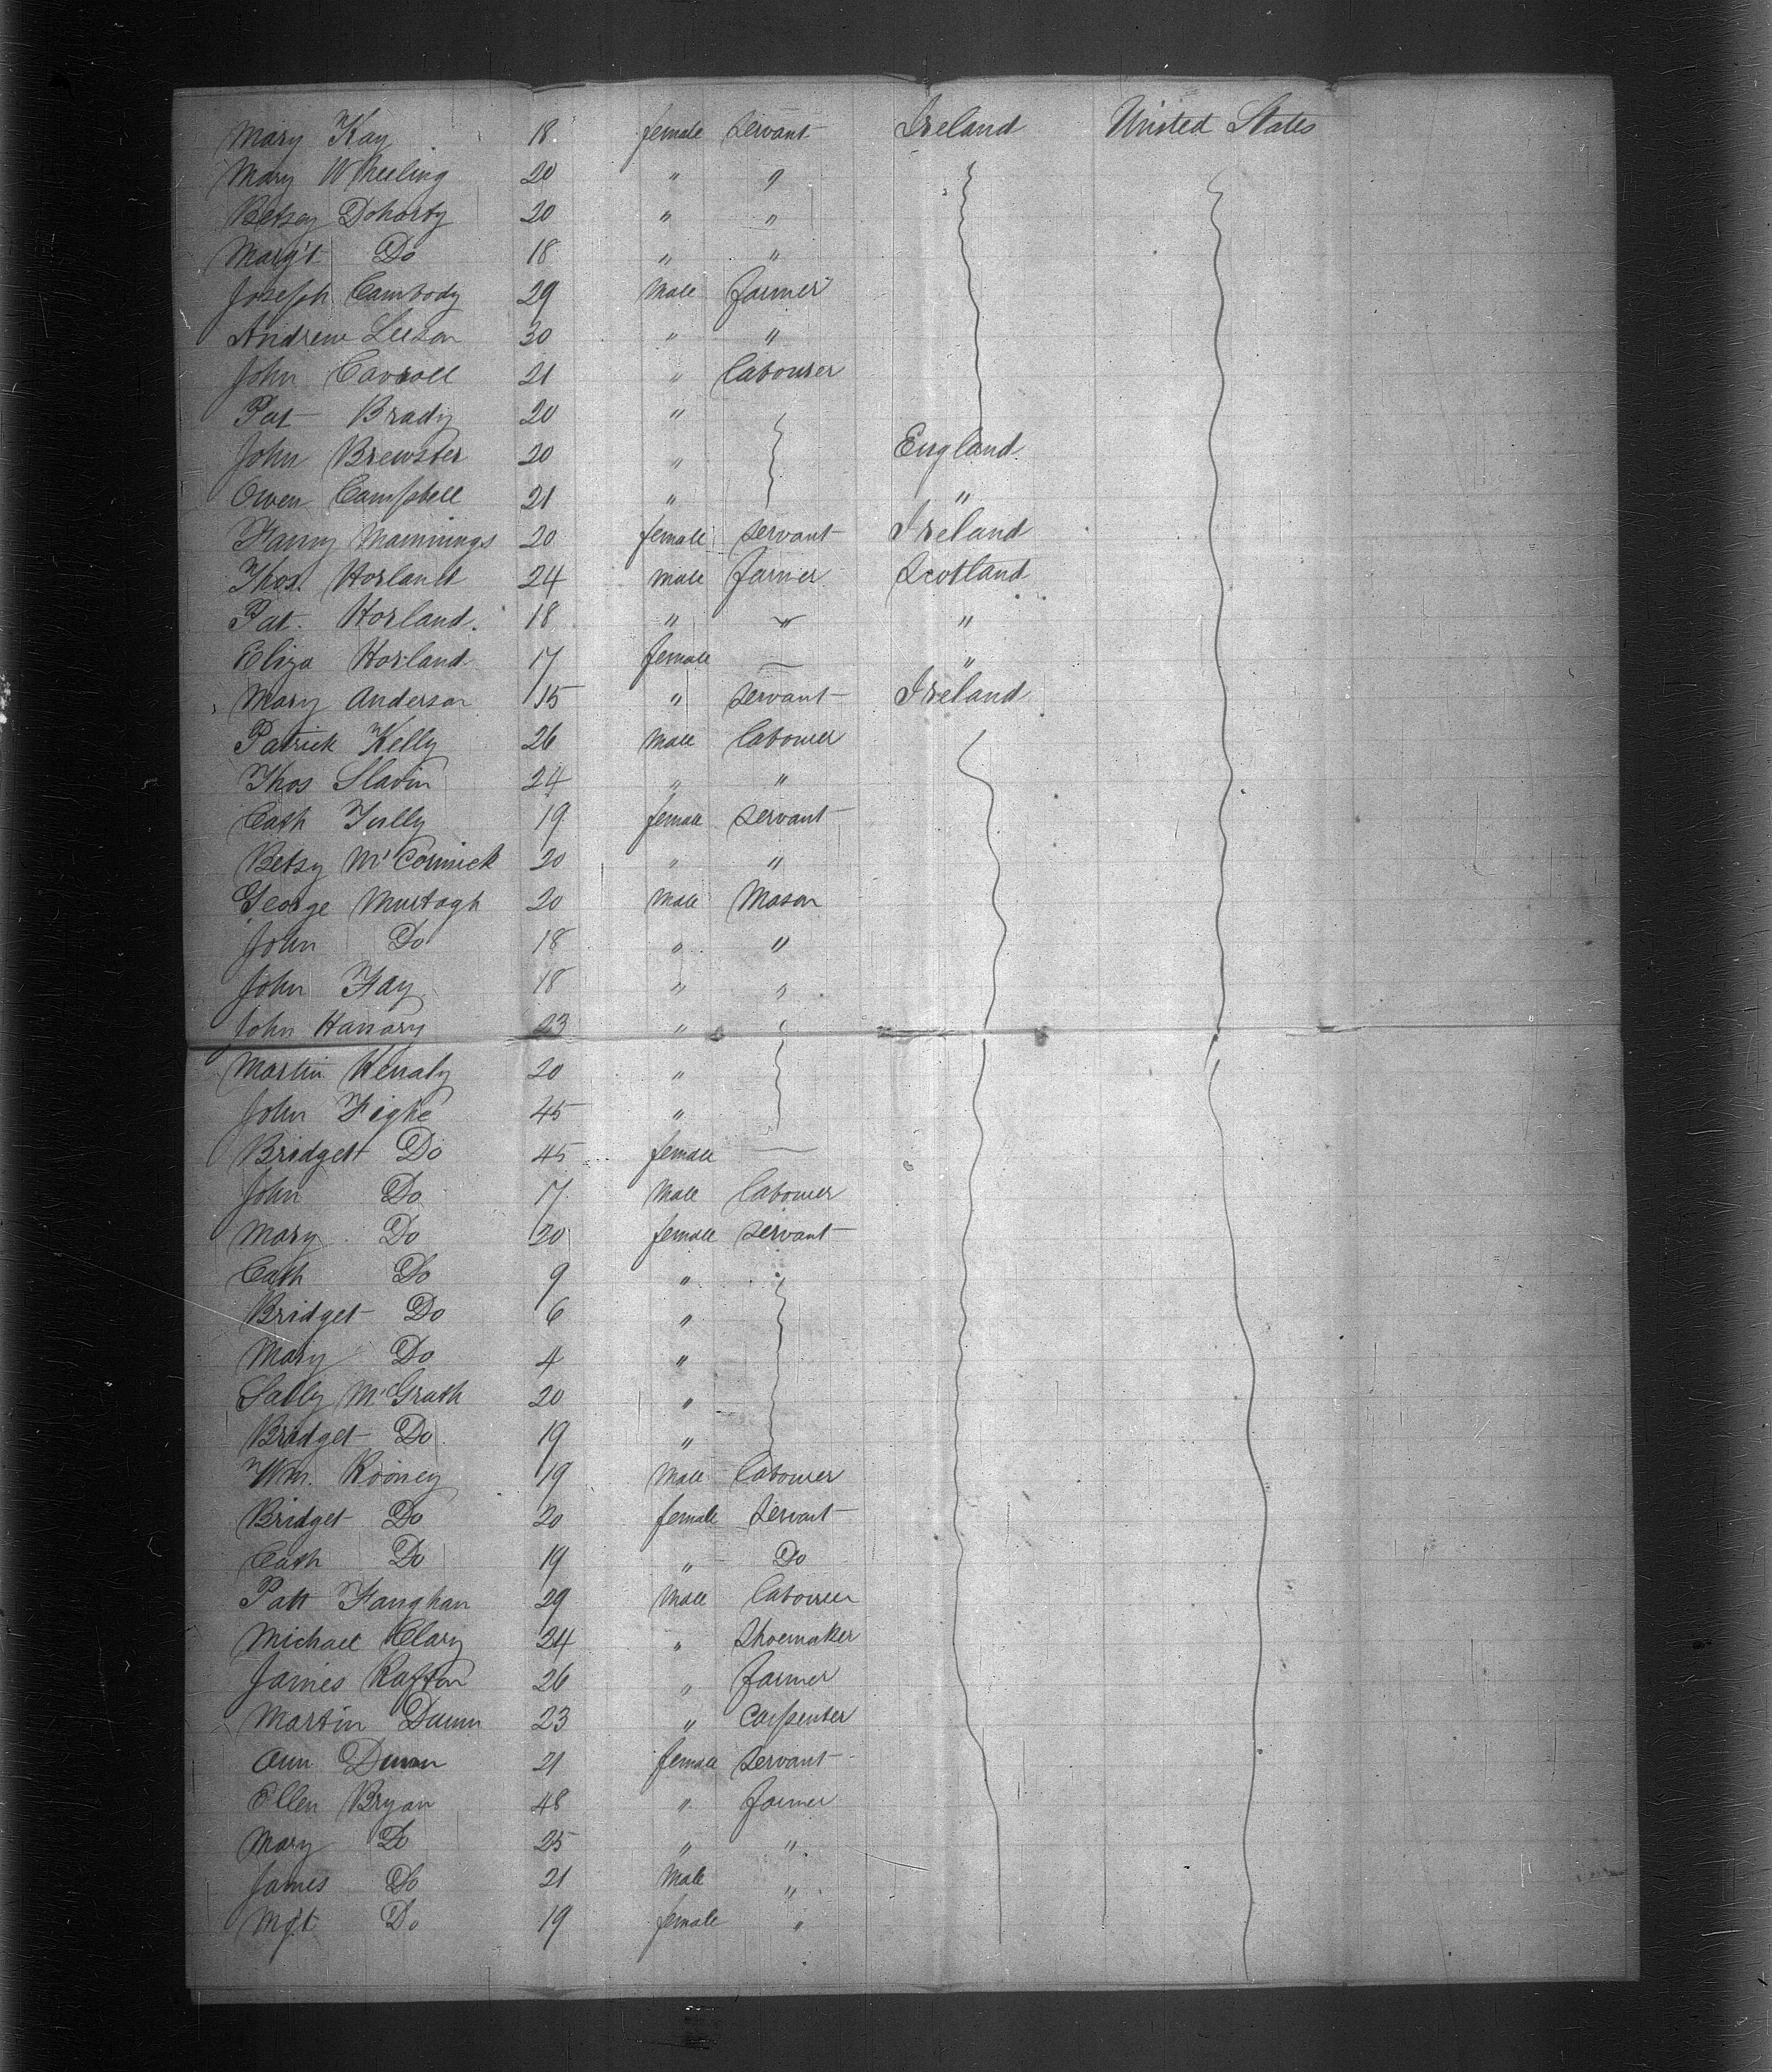 Mary Kay 18 female servant Ireland United States
Mary Wheeling 20 " "
Betsey Dohorty 20 " "
Marg't Do 18 " "
Joseph Cambody 29 Male farmer
Andrew Leeson 30 " "
John Carroll 21 " labourer
Pat Brady 20 "
John Brewster 20 " England
Owen Campbell 21 " "
Fanny Mannings 20 female servant Ireland
Thos. Horland 24 male farmer Scotland
Pat. Horland. 18 " " "
Eliza Horland 17 female — "
Mary Anderson 15 " servant Ireland
Patrick Kelly 26 Male labourer
Thos Slavin 24 " "
Cath Tully 19 female servant
Betsy McCormick 20 " "
George Murtagh 20 Male Mason
John Do 18 " "
John Fay 18 " "
John Hanary 23 " "
Martin 20 "
John Fighe 45 "
Bridget Do 45 female —
John Do 17 Male labourer
Mary Do 20 female servant
Cath Do 9 "
Bridget Do 6 "
Mary Do 4 "
Sally McGrath 20 "
Bridget Do 19 "
Wm. Rooney 19 Male labourer
Bridget Do 20 female servant
Cath Do 19 " Do
Patt Faughan 29 Male labourer
Michael Clary 24 " shoemaker
James Rafton 26 " farmer
Martin Dunn 23 " carpenter
Ann Dunn 21 female servant
Ellen Bryan 48 " farmer
Mary Do 25 " "
James Do 21 Male "
Mgt Do 19 female "